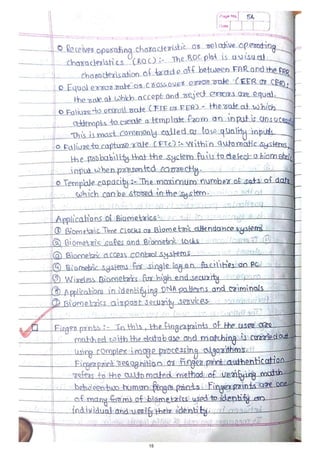 Page No. 5A
Date
Receiver operating characteristic or relative operating
characteristics (ROC) :- The ROC plot is a visual
characterisation of trade off between FAR and the FRR
Equal error rate or crossover error rate (EER or CER):
the rate at which accept and reject errors are equal.
Failure to enroll rate (FTE or FER) - the rate at which
attempts to create a template from an input is unsuccess
This is most commonly called as low quality inputs
Failure to capture rate (FTC) :- Within automatic systems,
the probability that the system fails to detect a biometric
input when presented correctly.
Template capacity :- The maximum number of sets of data
which can be stored in the system.
Applications of Biometrics
① Biometric Time Clocks or Biometric attendance systems
② Biometric safes and Biometric locks
③ Biometric access control systems
④ Biometric systems for single log on facilities on PC
⑤ Wireless Biometrics for high end security
⑥ Applications in identifying DNA patterns and criminals
⑦ Biometrics airport security services
Finger prints :- In this, the fingerprints of the user are
matched with the database and matching is carried out
using complex image processing algorithms.
Fingerprint recognition or finger print authentication
refers to the automated method of verifying match
between two human finger prints. Fingerprints are one
of many forms of biometrics used to identify an
individual and verify their identity.